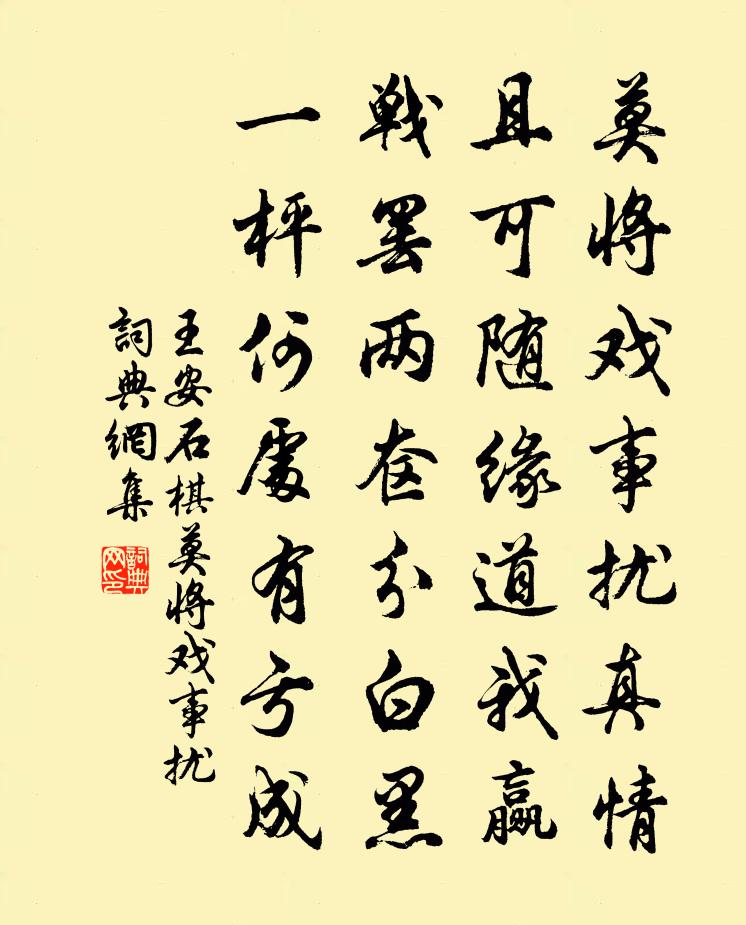 莫将戏事扰真情
且可随缘道我赢
戦罢两奁分白黑
一枰何處有亏成
王安石棋莫将戏事扰
詞典網集
詞典网印